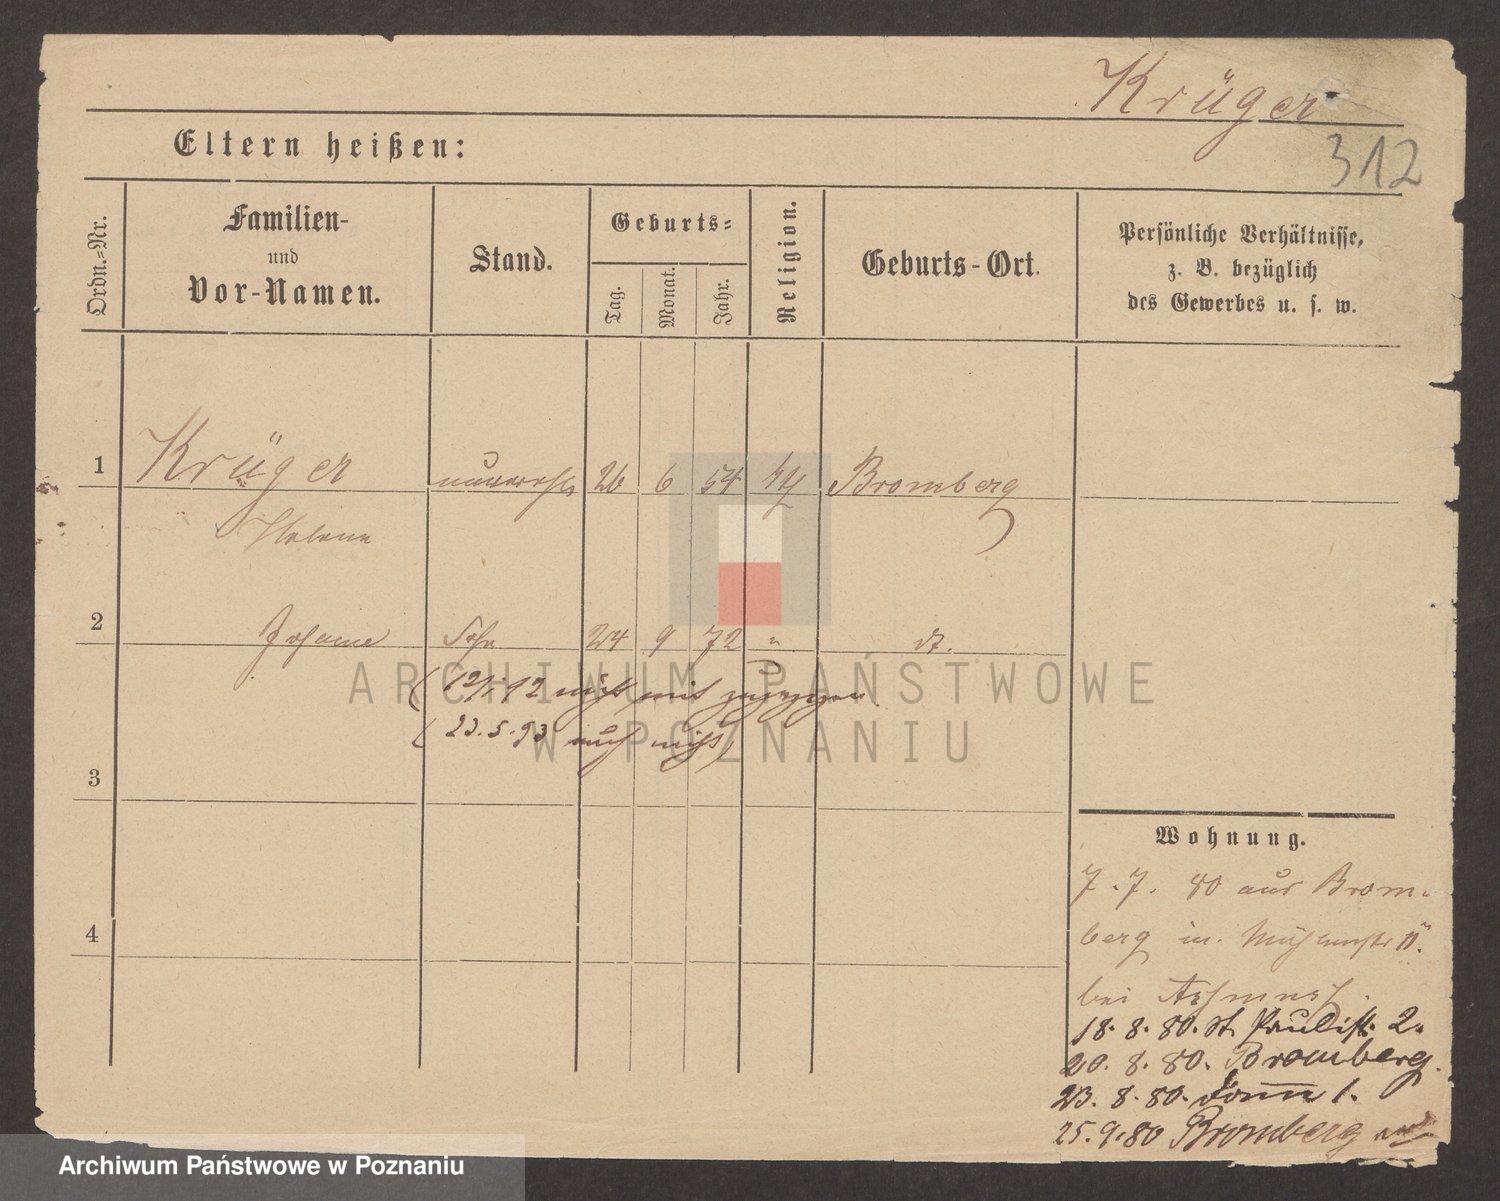 Krüger
312
Eltern heißen:
Ordn.=Nr.
Familien-
und
Vor-Namen.
Stand.
Geburts=
Tag.
Monat.
Jahr.
Religion.
Geburts-Ort.
Persönliche Verhältnisse,
z. B. bezüglich
des Gewerbes u. s. w.
1 Krüger 26 6 54 Bromberg
Helene
2 24 9 72 " dt.
nicht mit zugezogen.
23.5.93 auch nicht)
3
4
Wohnung.
7.7. 80 aus Brom-
berg
bei
18.8.80. St. Paulistr. 2.
20.8.80. Bromberg.
23.8.80. 1.
25.9.80 Bromberg
ARCHIWUM PAŃSTWOWE
W POZNANIU
Archiwum Państwowe w Poznaniu